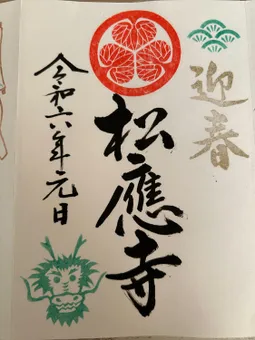 迎春
松應寺
令和六年元日